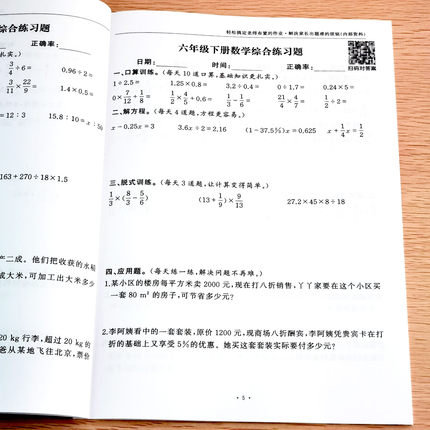 综合练习题
正确率：
实。）
3/4÷6=
0.96÷2=
3/11×22/9=
1.4×0.5=
=12：3
15.8：10=x：50
163+270÷18×1.5
二成。他们把收获的水稻
成大米，可加工出大米多少
20 kg 行李，超过 20 kg 的
爸从某地飞往北京，票价
轻松搞定老师布置的作业·解决家长出题难的烦恼（内部资料）
六年级下册数学综合练习题
扫码对答案
日期： 时间： 正确率：
一、口算训练。（每天 10 道口算，基础知识更扎实。）
1÷2.5= 1.25×0.8= 3.2÷0.4= 0÷1.7= 0.24×5=
0×7/12+1/8= 1/2×4/5+0.6= 1/3-1/6= 21/4×4/7= 1/2÷2=
二、解方程。（每天 4 道题，方程更容易。）
x-0.25x=3 3.6x÷2=2.16 (1-37.5%)x=0.625 x+1/4x=1/2
三、脱式训练。（每天 3 道题，让计算变得简单。）
1/3×(8/3-5/6) (13+1/9)×9/13 27.2×45×8÷18
四、应用题。（每天练一练，解决问题不再难。）
1.某小区的楼房每平方米卖 2000 元，现在打八折销售，丫丫家要在这个小区买
一套 80 m² 的房子，可节省多少元？
2.李阿姨看中的一套套装，原价 1200 元，现商场八折酬宾，李阿姨凭贵宾卡在打
折的基础上又享受 5%的优惠。她买这套套装实际要付多少元？
· 5 ·